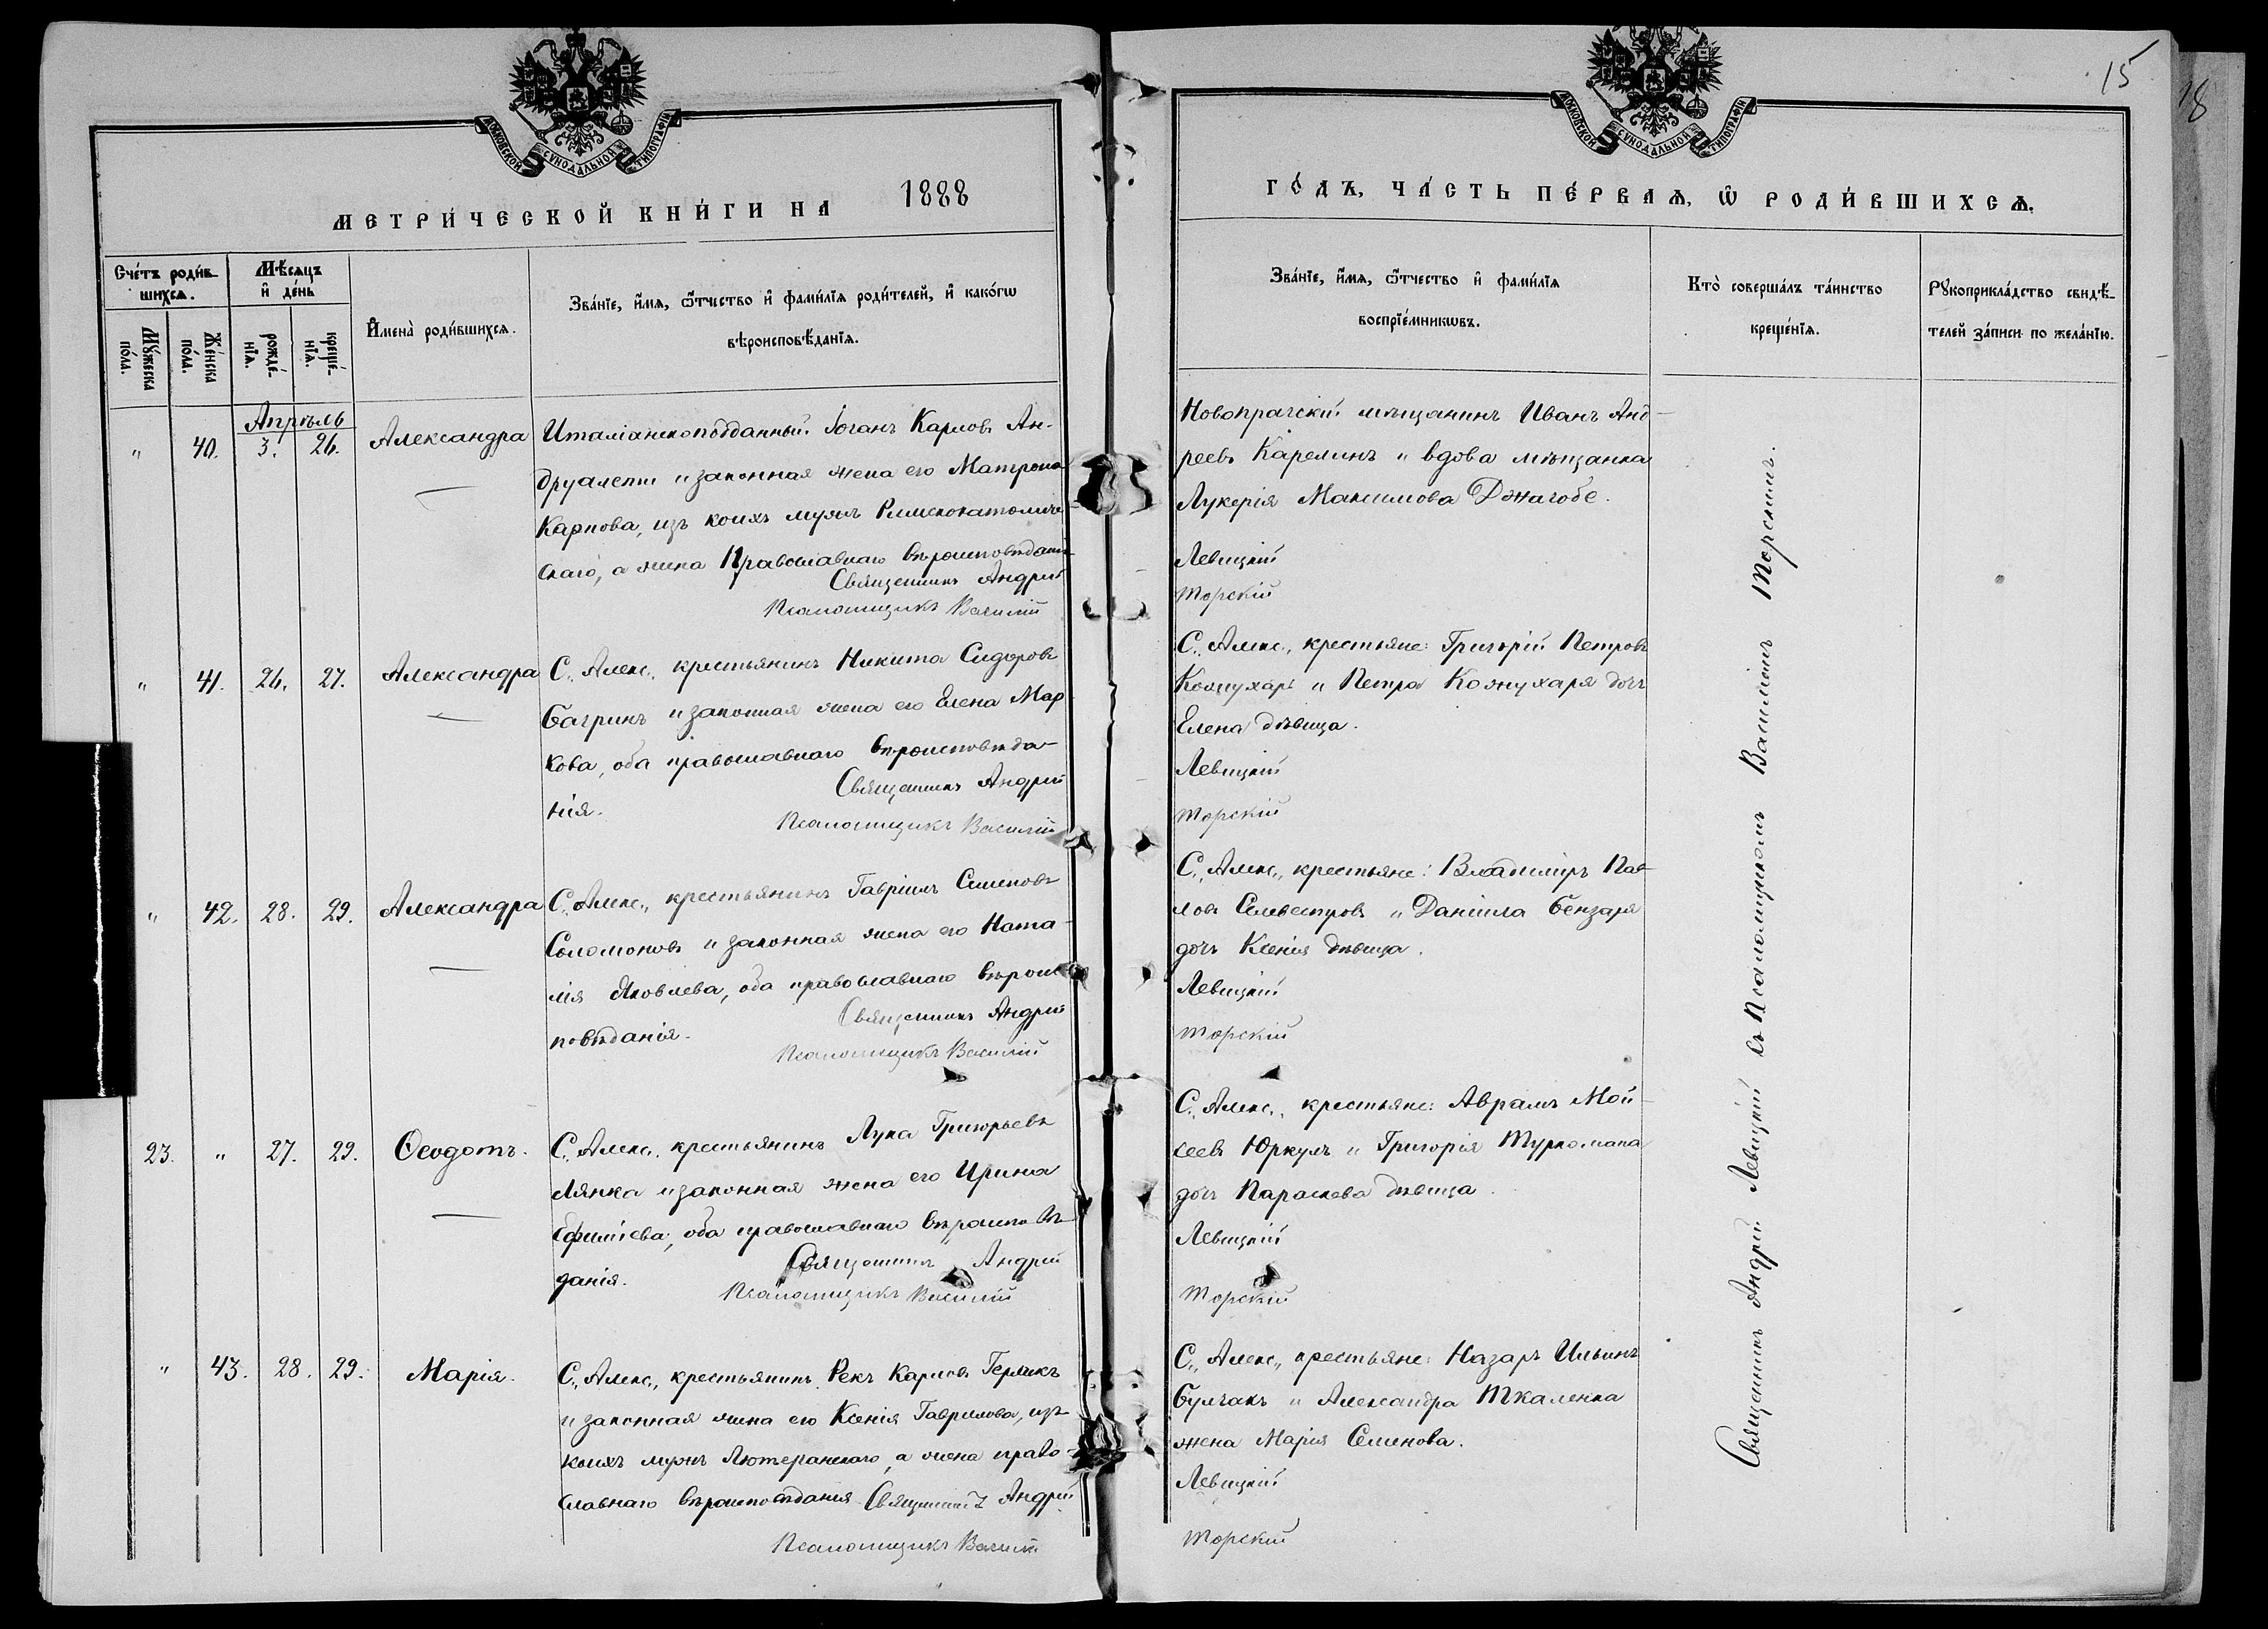 15
18
МОСКОВСКОЙ СѴНОДАЛЬНОЙ ТИПОГРАФІИ
МОСКОВСКОЙ СѴНОДАЛЬНОЙ ТИПОГРАФІИ
МЕТРИ́ЧЕСКОЙ КНИ́ГИ НА 1888
ГО́ДЪ, ЧА́СТЬ ПЕ́РВАѦ, Ѡ҆ РОДИ́ВШИХСѦ.
Сче́тъ роди́в-
шихсѧ.
Мѣ́сѧцъ
и҆ де́нь
Мꙋ́жеска
по́ла.
Же́нска
по́ла.
рожде́-
нїѧ.
креще́-
нїѧ.
И҆мена̀ роди́вшихсѧ.
Зва́нїе, и҆́мѧ, ѻ҆́тчество и҆ фами́лїѧ роди́телей, и҆ како́гѡ
вѣроисповѣ́данїѧ.
Зва́нїе, и҆́мѧ, ѻ҆́тчество и҆ фами́лїѧ
воспрїе́мникѡвъ.
Кто̀ соверша́лъ та́инство
креще́нїѧ.
Рꙋкоприкла́дство свидѣ́-
телей за́писи по жела́нїю.
Апрѣль
" 40. 3. 26. Александра
Италіанскоподданный Іоганъ Карловъ Ан-
друалети и законная жена его Матрона
Карпова, изъ коихъ мужъ Римскокатоличе-
скаго, а жена Православнаго вѣроисповѣдані
Священникъ Андрей
Псаломщикъ Василій
Новопрагскій мѣщанинъ Иванъ Анд-
реевъ Карелинъ и вдова мѣщанка
Лукерія Максимова Джагобе.
Левицкій
Торскій
" 41. 26. 27. Александра
С. Алекс., крестьянинъ Никита Сидоровъ
Багринъ и законная жена его Елена Мар
кова, оба православнаго вѣроисповѣда-
нія.
Священникъ Андрей
Псаломщикъ Василій
С. Алекс., крестьяне: Григорій Петровъ
Кожухарь и Петра Кожухаря дочь
Елена дѣвица.
Левицкій
Торскій
" 42. 28. 29. Александра
С. Алекс., крестьянинъ Гавріилъ Семеновъ
Соломоновъ и законная жена его Ната-
лія Яковлева, оба православнаго вѣроис
повѣданія.
Священникъ Андрей
Псаломщикъ Василій
С. Алекс., крестьяне: Владиміръ Пав-
ловъ Селвестровъ и Даніила Бензаря
дочь Ксенія дѣвица.
Левицкій
Торскій
23. " 27. 29. Ѳеодотъ.
С. Алекс., крестьянинъ Лука Григорьевъ
Лянка и законная жена его Ирина
Ефиміева, оба православнаго вѣроисповѣ
данія.
Священникъ Андрей
Псаломщикъ Василій
С. Алекс., крестьяне: Аврамъ Мои-
сеевъ Юркулъ и Григорія Туркомана
дочь Параскева дѣвица.
Левицкій
Торскій
" 43. 28. 29. Марія.
С. Алекс., крестьянинъ Карловъ
и законная жена его Ксенія Гаврилова, изъ
коихъ мужъ Лютеранскаго, а жена право-
славнаго вѣроисповѣданія Священникъ Андрей
Псаломщикъ Василій
С. Алекс., крестьяне: Назаръ Ильинъ
Булчакъ и Александра Ткаленка
жена Марія Семенова.
Левицкій
Торскій
Священникъ Андрей Левицкій съ Псаломщикомъ Василіемъ Торскимъ.